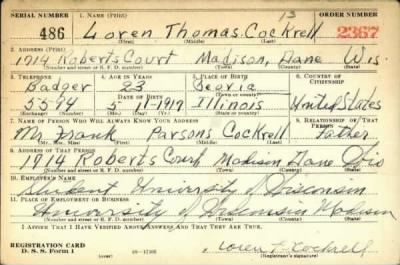 SERIAL NUMBER 1. NAME (Print) 13 ORDER NUMBER
486 Loren Thomas Cockrell 2367
(First) (Middle) (Last)
2. ADDRESS (Print)
1714 Roberts Court Madison, Dane Wis.
(Number and street or R. F. D. number) (Town) (County) (State)
3. TELEPHONE 4. AGE IN YEARS 5. PLACE OF BIRTH 6. COUNTRY OF CITIZENSHIP
Badger 23 Peoria
(Town or county)
DATE OF BIRTH
5594 5 11 1917 Illinois United States
(Exchange) (Number) (Mo.) (Day) (Yr.) (State or country)
7. NAME OF PERSON WHO WILL ALWAYS KNOW YOUR ADDRESS 8. RELATIONSHIP OF THAT PERSON
Mr. Frank Parsons Cockrell Father
(Mr., Mrs., Miss) (First) (Middle) (Last)
9. ADDRESS OF THAT PERSON
1714 Roberts Court Madison Dane Wis
(Number and street or R. F. D. number) (Town) (County) (State)
10. EMPLOYER'S NAME
Student University of Wisconsin
11. PLACE OF EMPLOYMENT OR BUSINESS
University of Wisconsin Madison
(Number and street or R. F. D. number) (Town) (County) (State)
I AFFIRM THAT I HAVE VERIFIED ABOVE ANSWERS AND THAT THEY ARE TRUE.
REGISTRATION CARD
D. S. S. Form 1 16—17105 Loren T. Cockrell
(Registrant's signature)